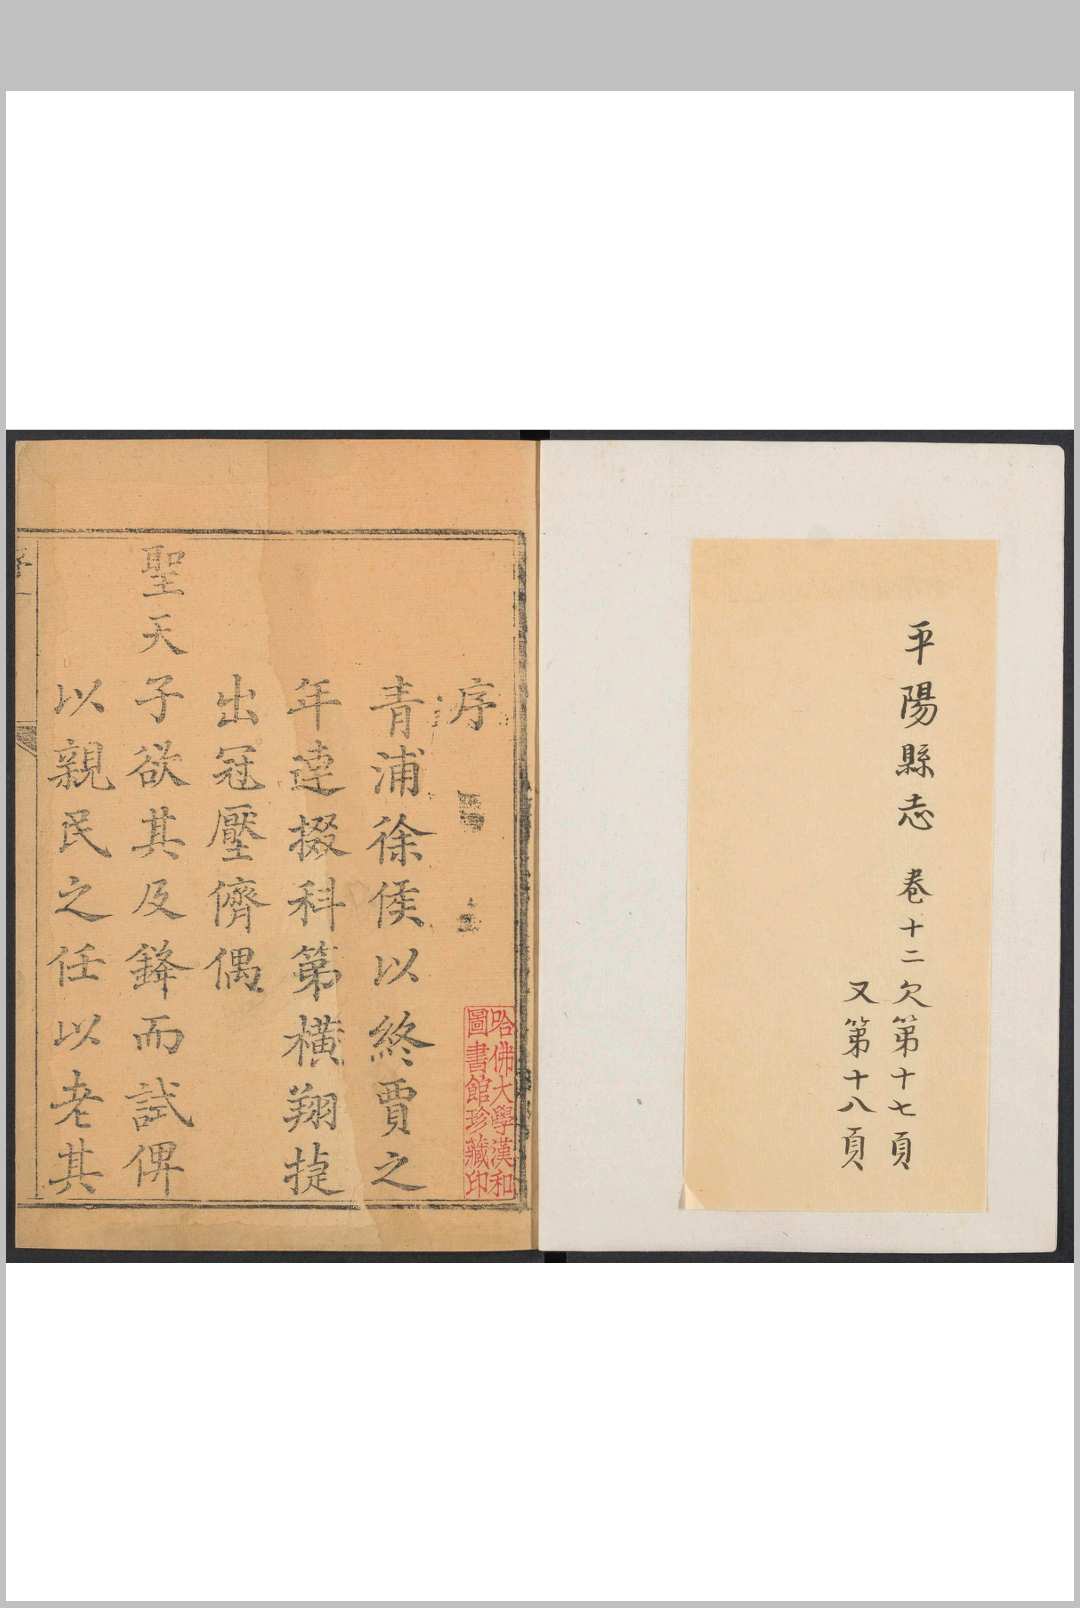 平陽縣志 卷十二欠第十七頁
又第十八頁
序
哈佛大學漢和
圖書館珍藏印
青浦徐侯以終賈之
年連掇科第橫翔捷
出冠壓儕偶
聖天子欲其及鋒而試俾
以親民之任以老其